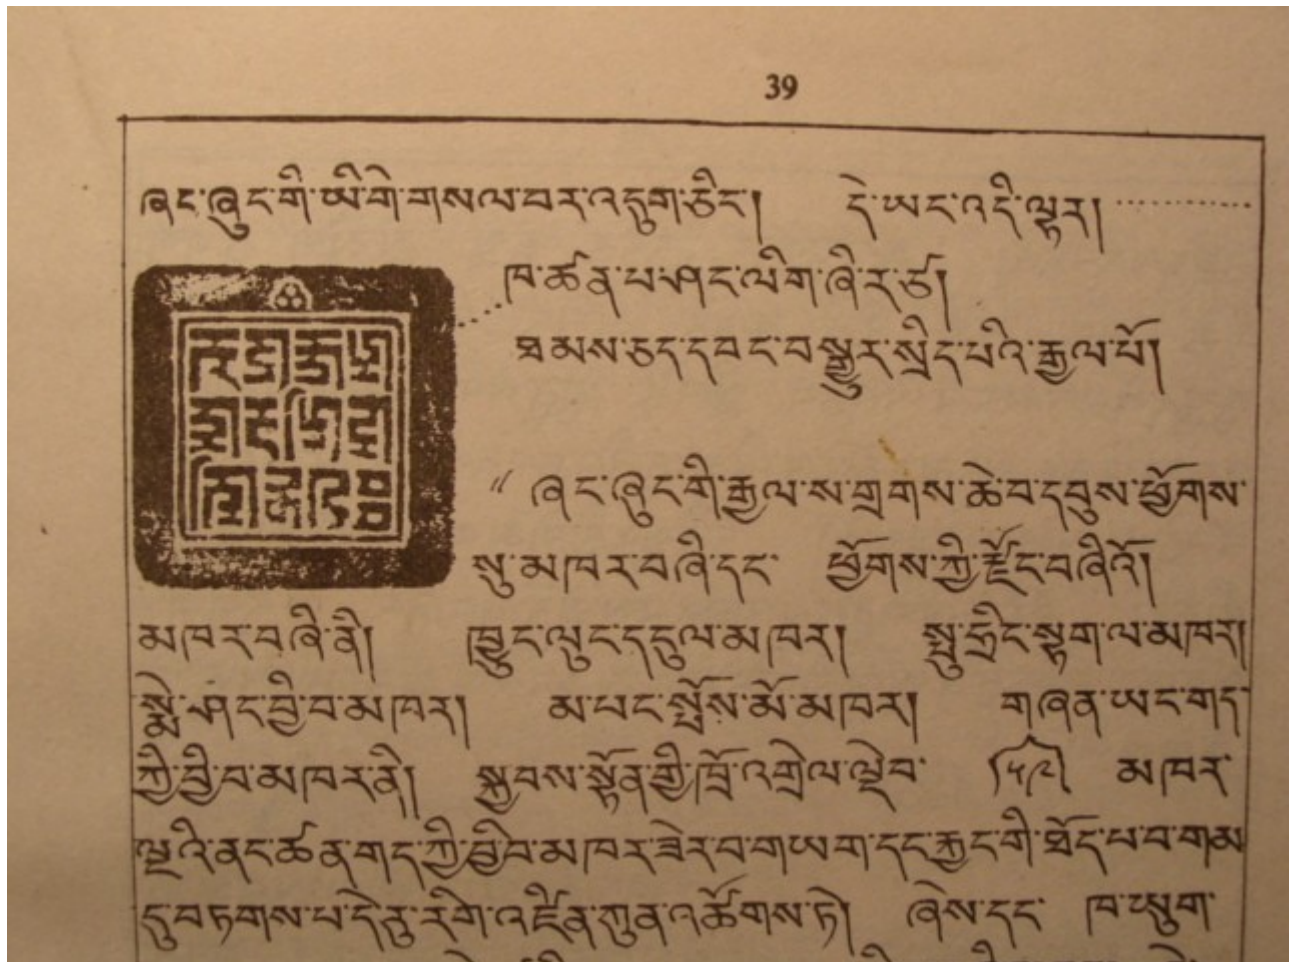 39
ཞང་ཞུང་གི་ཡི་གེ་གསལ་བར་འདུག་ཅིང། དེ་ཡང་འདི་ལྟར།
ཁ་ཚན་པ་ཤང་ལིག་ཞི་ར་ཙ།
ཐམས་ཅད་དབང་བསྒྱུར་སྲིད་པའི་རྒྱལ་པོ།
“ ཞང་ཞུང་གི་རྒྱལ་ས་གྲགས་ཆེ་བ་དབུས་ཕྱོགས་
སུ་མཁར་བཞི་དང་ ཕྱོགས་ཀྱི་རྫོང་བཞིའོ།
མཁར་བཞི་ནི། ཁྱུང་ལུང་དངུལ་མཁར། སྤུ་ཧྲིང་སྟག་ལ་མཁར།
སྨེ་ཤང་བྱི་བ་མཁར། མ་པང་སྤོས་མོ་མཁར། གཞན་ཡང་གད་
ཀྱི་བྱི་བ་མཁར་ནི། སྐྱབས་སྟོན་གྱི་ཁྲོ་འགྲེལ་ལྡེབ་ (༥༩) མཁར་
ལྔའི་ནང་ཚན་གད་ཀྱི་བྱི་བ་མཁར་ཟེར་བ་གཡག་དང་རྐྱང་གི་ཐོད་པ་བ་གམ
དུ་བཏགས་པ་དེ་རུ་རིགེ་འཛིན་ཀུན་འཚོགས་ཏེ། ཞེས་དང་ ཁ་ཡུག་